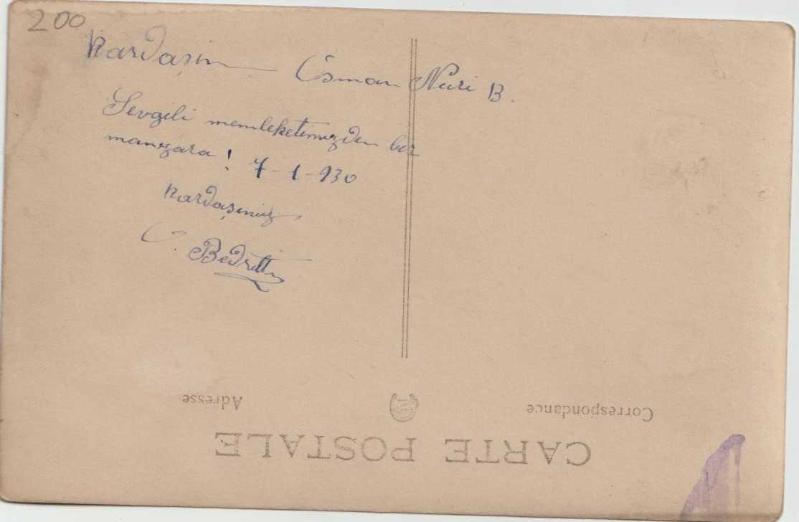 200
Kardaşım Osman Nuri B.
Sevgili memleketimizden bir
manzara! 7-1-930
Kardaşınız
Bedrettin
Correspondance
Adresse
CARTE POSTALE